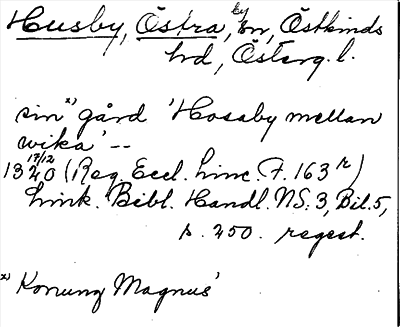 Husby, Östra, by, sn, Östkinds
hrd, Österg. l.
sin x) gård 'Hosaby mellan
wika' --
17/12
1320 (Reg. Eccl. Linc. F. 163 r)
Link. Bibl. Handl. NS: 3, Bil. 5,
s. 250. regest.
x) Konung Magnus'